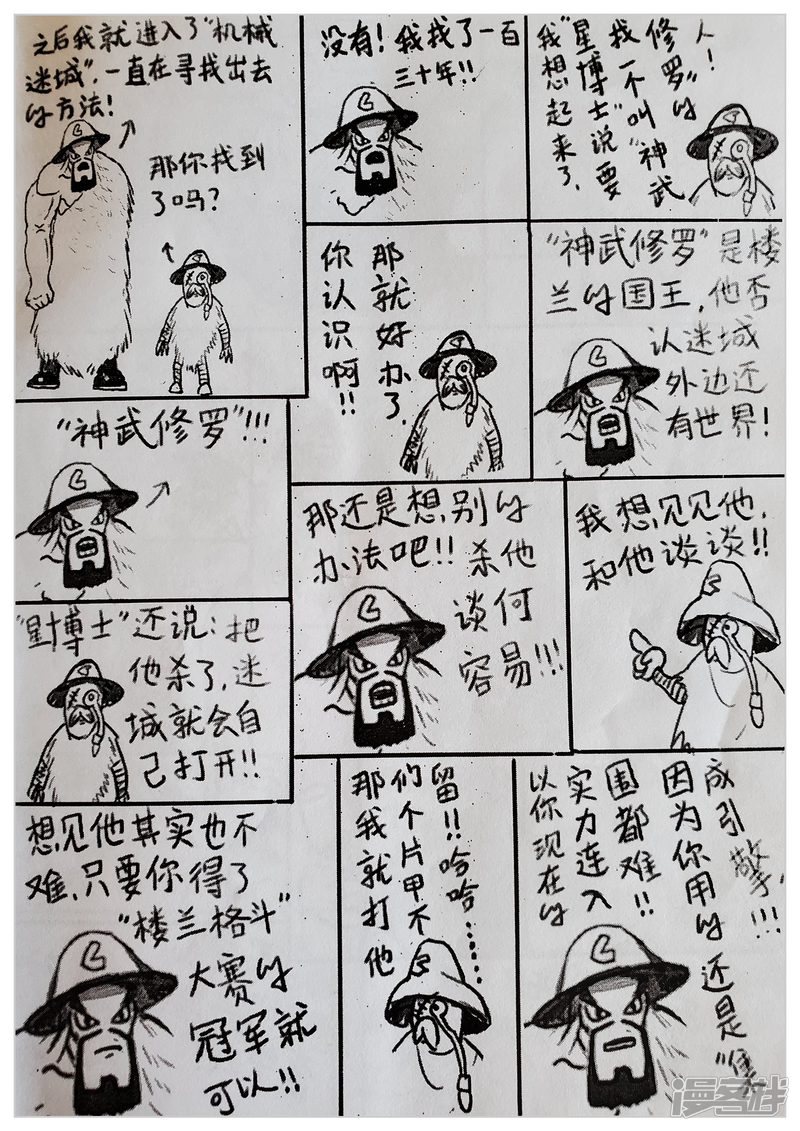 之后我就进入了"机械
迷城",一直在寻找出去
的方法!
那你找到
了吗?
没有!我找了一百
三十年!!
我想起来了,
"星博士"说要
找一个叫"神武
修罗"的
人!
"神武修罗"!!!
你认识啊!!
那就好办了,
"神武修罗"是楼
兰的国王,他否
认迷城
外边还
有世界!
"星博士"还说:把
他杀了,迷
城就会自
己打开!!
那还是想别的
办法吧!!杀他
谈何
容易!!!
我想见见他,
和他谈谈!!
想见他其实也不
难,只要你得了
"楼兰格斗"
大赛的
冠军就
可以!!
那我就打他
们个片甲不
留!!哈哈……
以你现在的
实力连入
围都难!!
因为你用的还是"
成引擎,!!!
漫客栈